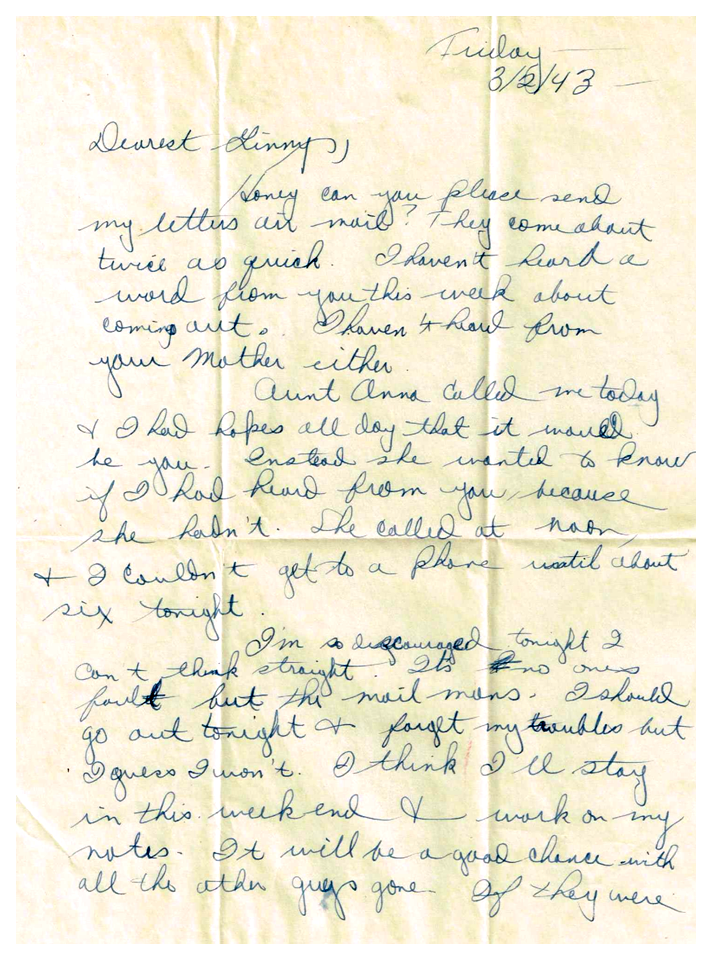 Friday
3/2/43
Dearest Ginny,
Honey can you please send
my letters air mail? They come about
twice as quick. I haven't heard a
word from you this week about
coming out. I haven't heard from
your Mother either.
Aunt Anna called me today
& I had hopes all day that it would
be you. Instead she wanted to know
if I had heard from you, because
she hadn't. She called at noon,
& I couldn't get to a phone until about
six tonight.
I'm so discouraged tonight I
can't think straight. Its no ones
fault but the mail mans. I should
go out tonight & forget my troubles but
I guess I won't. I think I'll stay
in this weekend & work on my
notes. It will be a good chance with
all the other guys gone. If they were